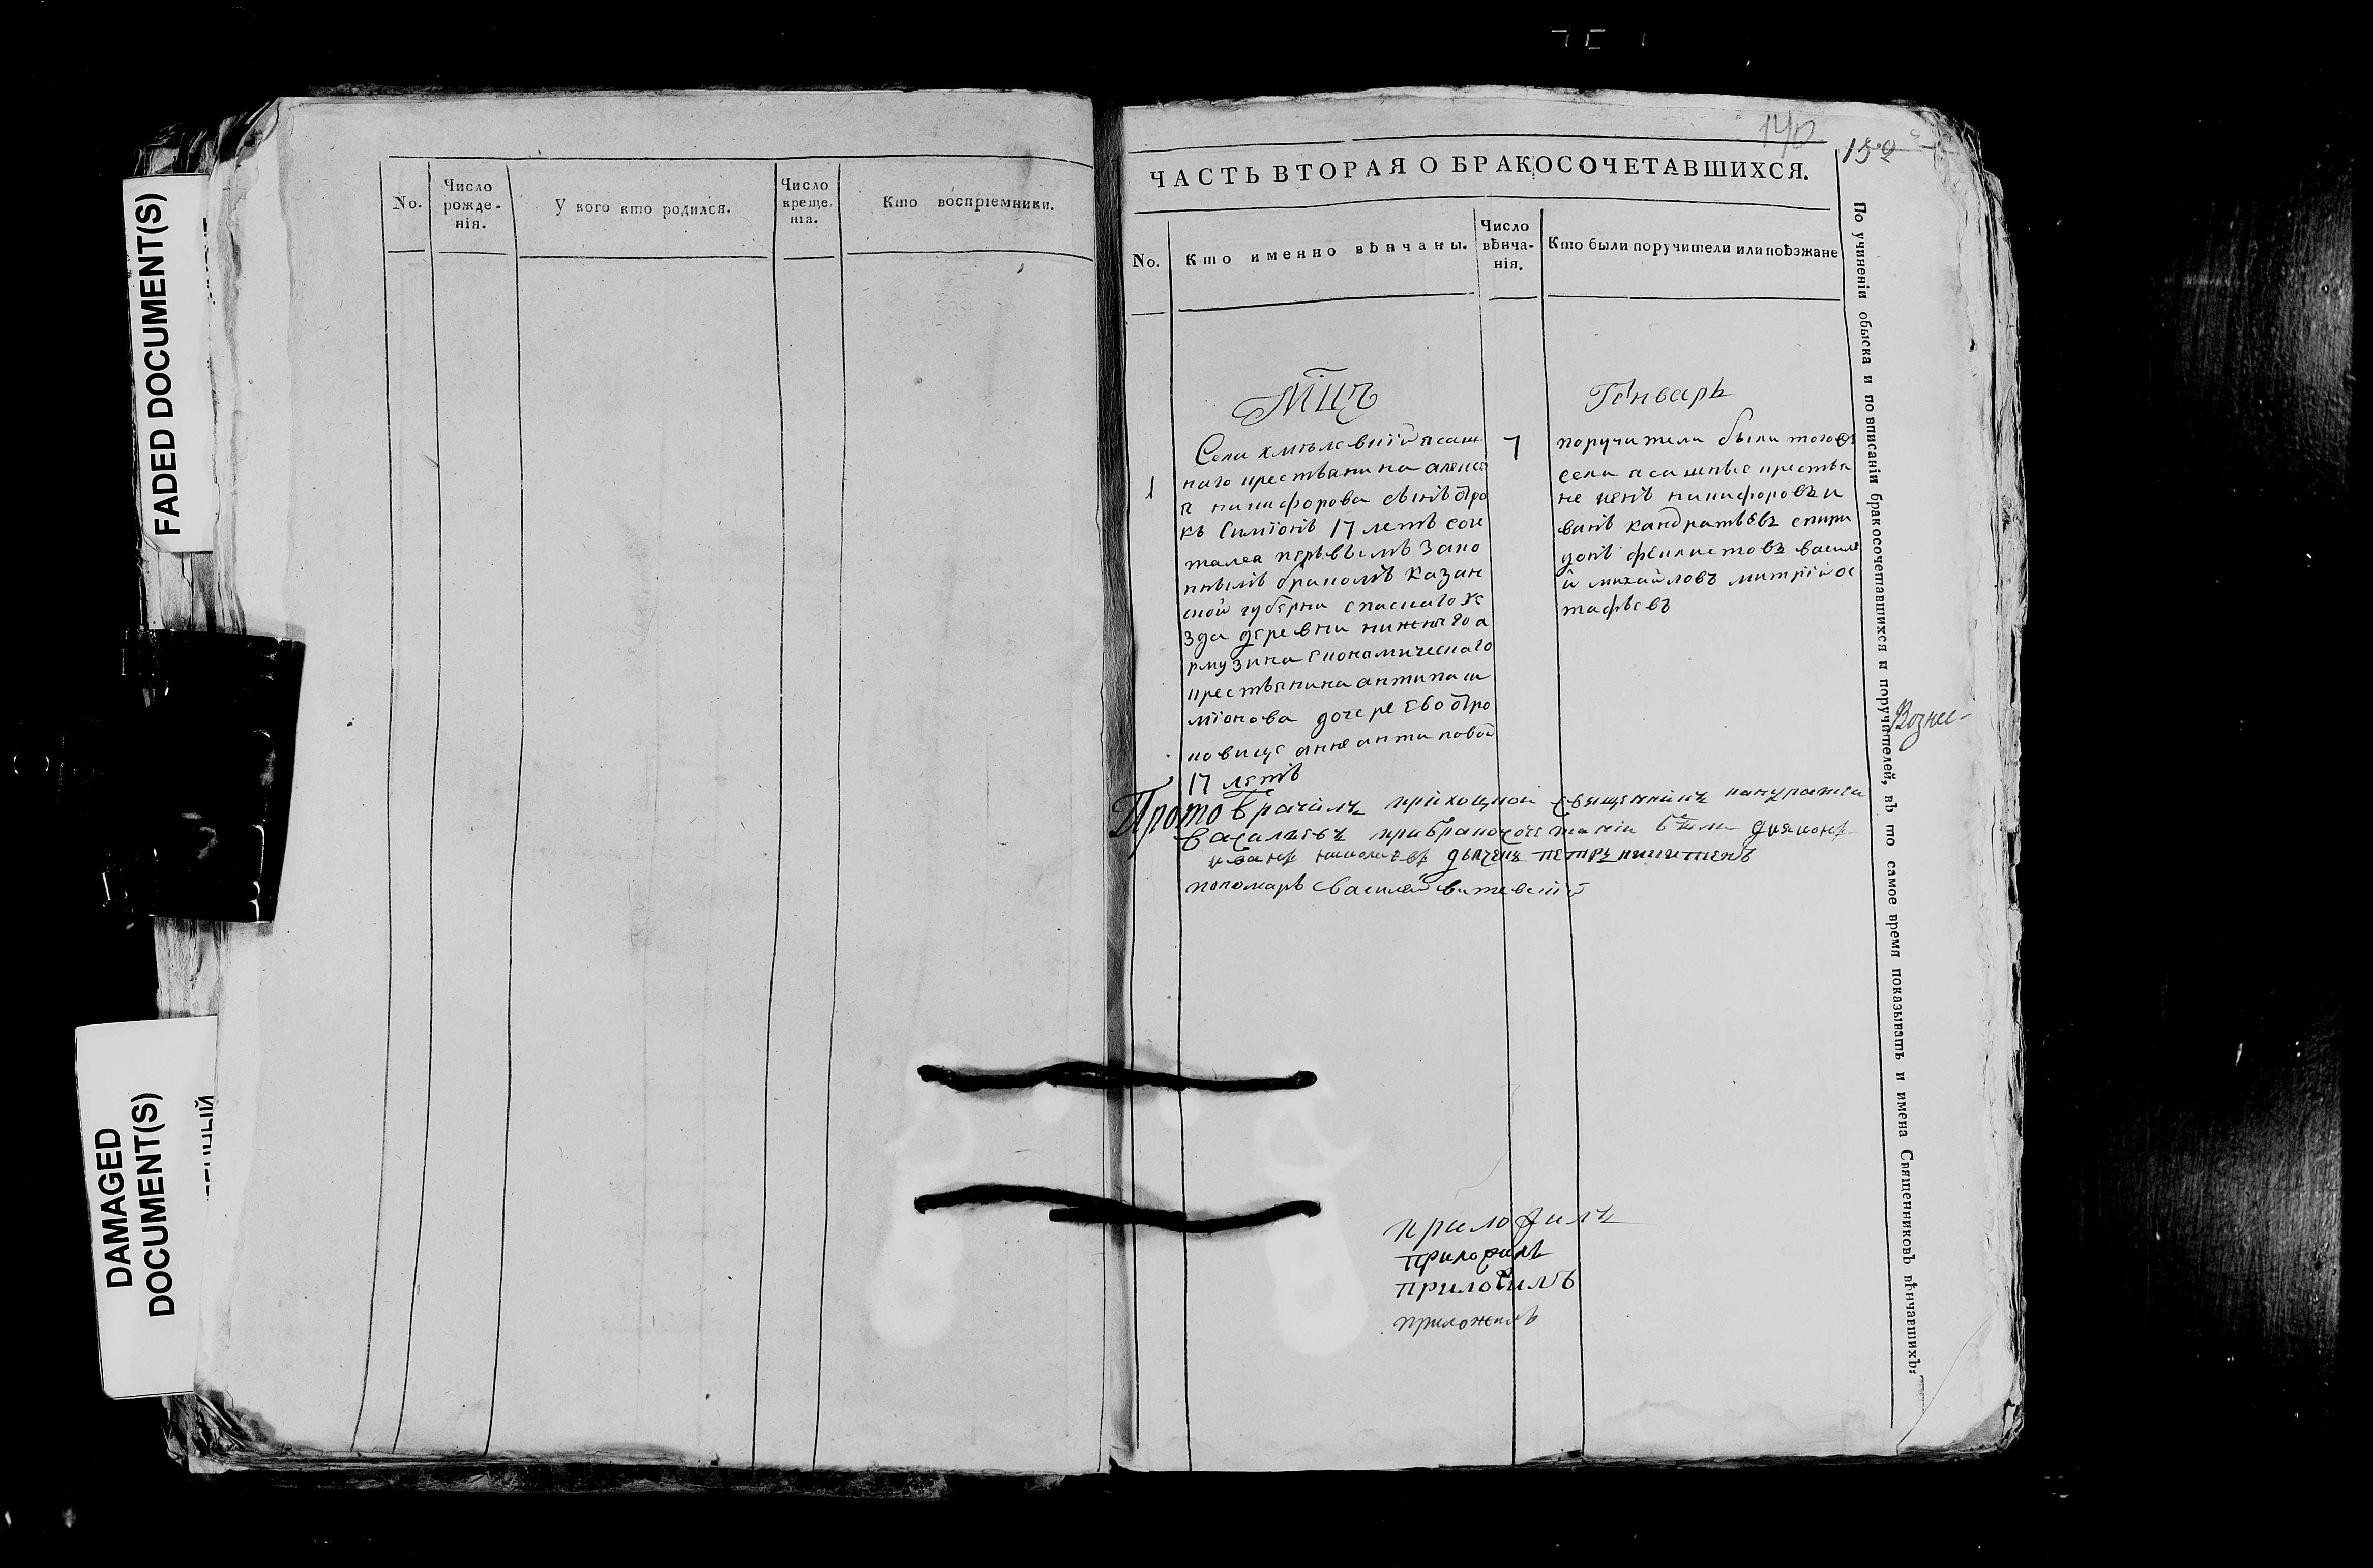 FADED DOCUMENT(S)
DAMAGED
DOCUMENT(S)
No.
Число
рожде-
нія.
У кого кто родился.
Число
креще-
нія.
Кто воспріемники.
140
152
ЧАСТЬ ВТОРАЯ О БРАКОСОЧЕТАВШИХСЯ.
No.
Кто именно вѣнчаны.
Число
вѣнча-
нія.
Кто были поручители или поѣзжане
Мцъ
Генварь
1
Села хмѣлевкій псаш
наго крестьянина алексѣ
я никифорова сынъ отро
къ Симіонъ 17 летъ соче
тался первымъ зако
ннымъ бракомъ казан
ской губерни спаскаго уе
зда деревни нижняго а
рмузина економическаго
крестьянина антипа си
міонова дочерью отро
ковице анне антиповой
17 летъ
7
поручители были тогожъ
села крестья
не никифоровъ и
ванъ кандратьевъ спири
донъ феклистовъ васили
й михайловъ митрій ос
тафьевъ
Прото врачилъ приходной священникъ
васильевъ при бракосочетаніи были диаконъ
иванъ дьячекъ петръ никитинъ
пономарь василей
приложилъ
приложилъ
приложилъ
приложилъ
По учиненіи обыска и по вписаніи бракосочетавшихся и поручителей, въ то самое время показывать и имена Священниковъ вѣнчавшихъ.
Вознес-